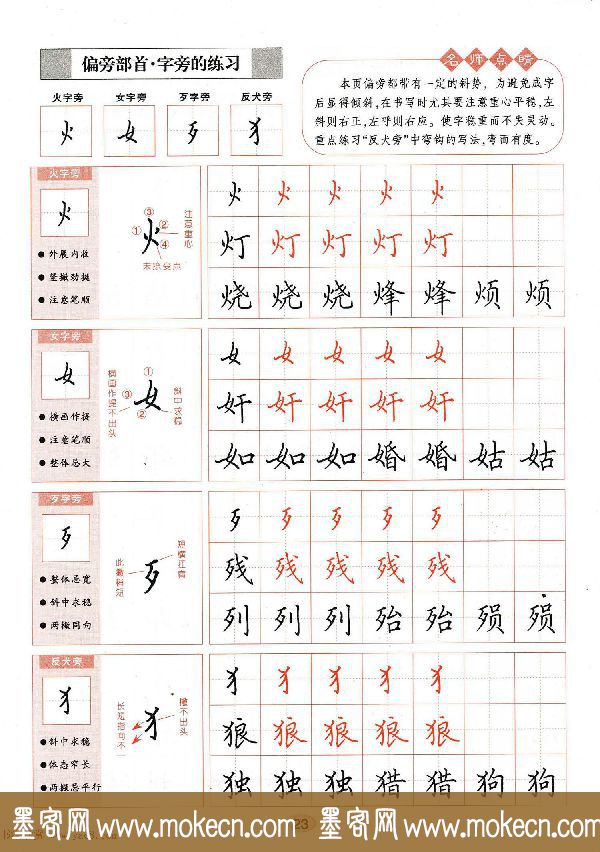 偏旁部首·字旁的练习
名师点睛
本页偏旁都带有一定的斜势，为避免成字
后显得倾斜，在书写时尤其要注意重心平稳，左
斜则右正，左呼则右应。使字稳重而不失灵动。
重点练习“反犬旁”中弯钩的写法，弯而有度。
火字旁 女字旁 歹字旁 反犬旁
火 女 歹 犭
火字旁
火
外展内收
竖撇劲挺
注意笔顺
③
① 火 ②
④
注意重心
末捺变点
火 火 火 火 火
灯 灯 灯 灯 灯
烧 烧 烧 烽 烽 烦 烦
女字旁
女
横画作提
注意笔顺
整体忌大
①
③ 女
②
横画作提不出头
斜中求稳
女 女 女 女 女
奸 奸 奸 奸 奸
如 如 如 婚 婚 姑 姑
歹字旁
歹
整体忌宽
斜中求稳
两撇同向
歹
此撇稍短
短横扛肩
歹 歹 歹 歹 歹
残 残 残 残 残
列 列 列 殆 殆 殒 殒
反犬旁
犭
斜中求稳
体态窄长
两撇忌平行
犭
长短指向不一
撇不出头
犭 犭 犭 犭 犭
狼 狼 狼 狼 狼
独 独 独 猎 猎 狗 狗
23
墨客网 www.mokecn.com 墨客网 www.mokecn.com